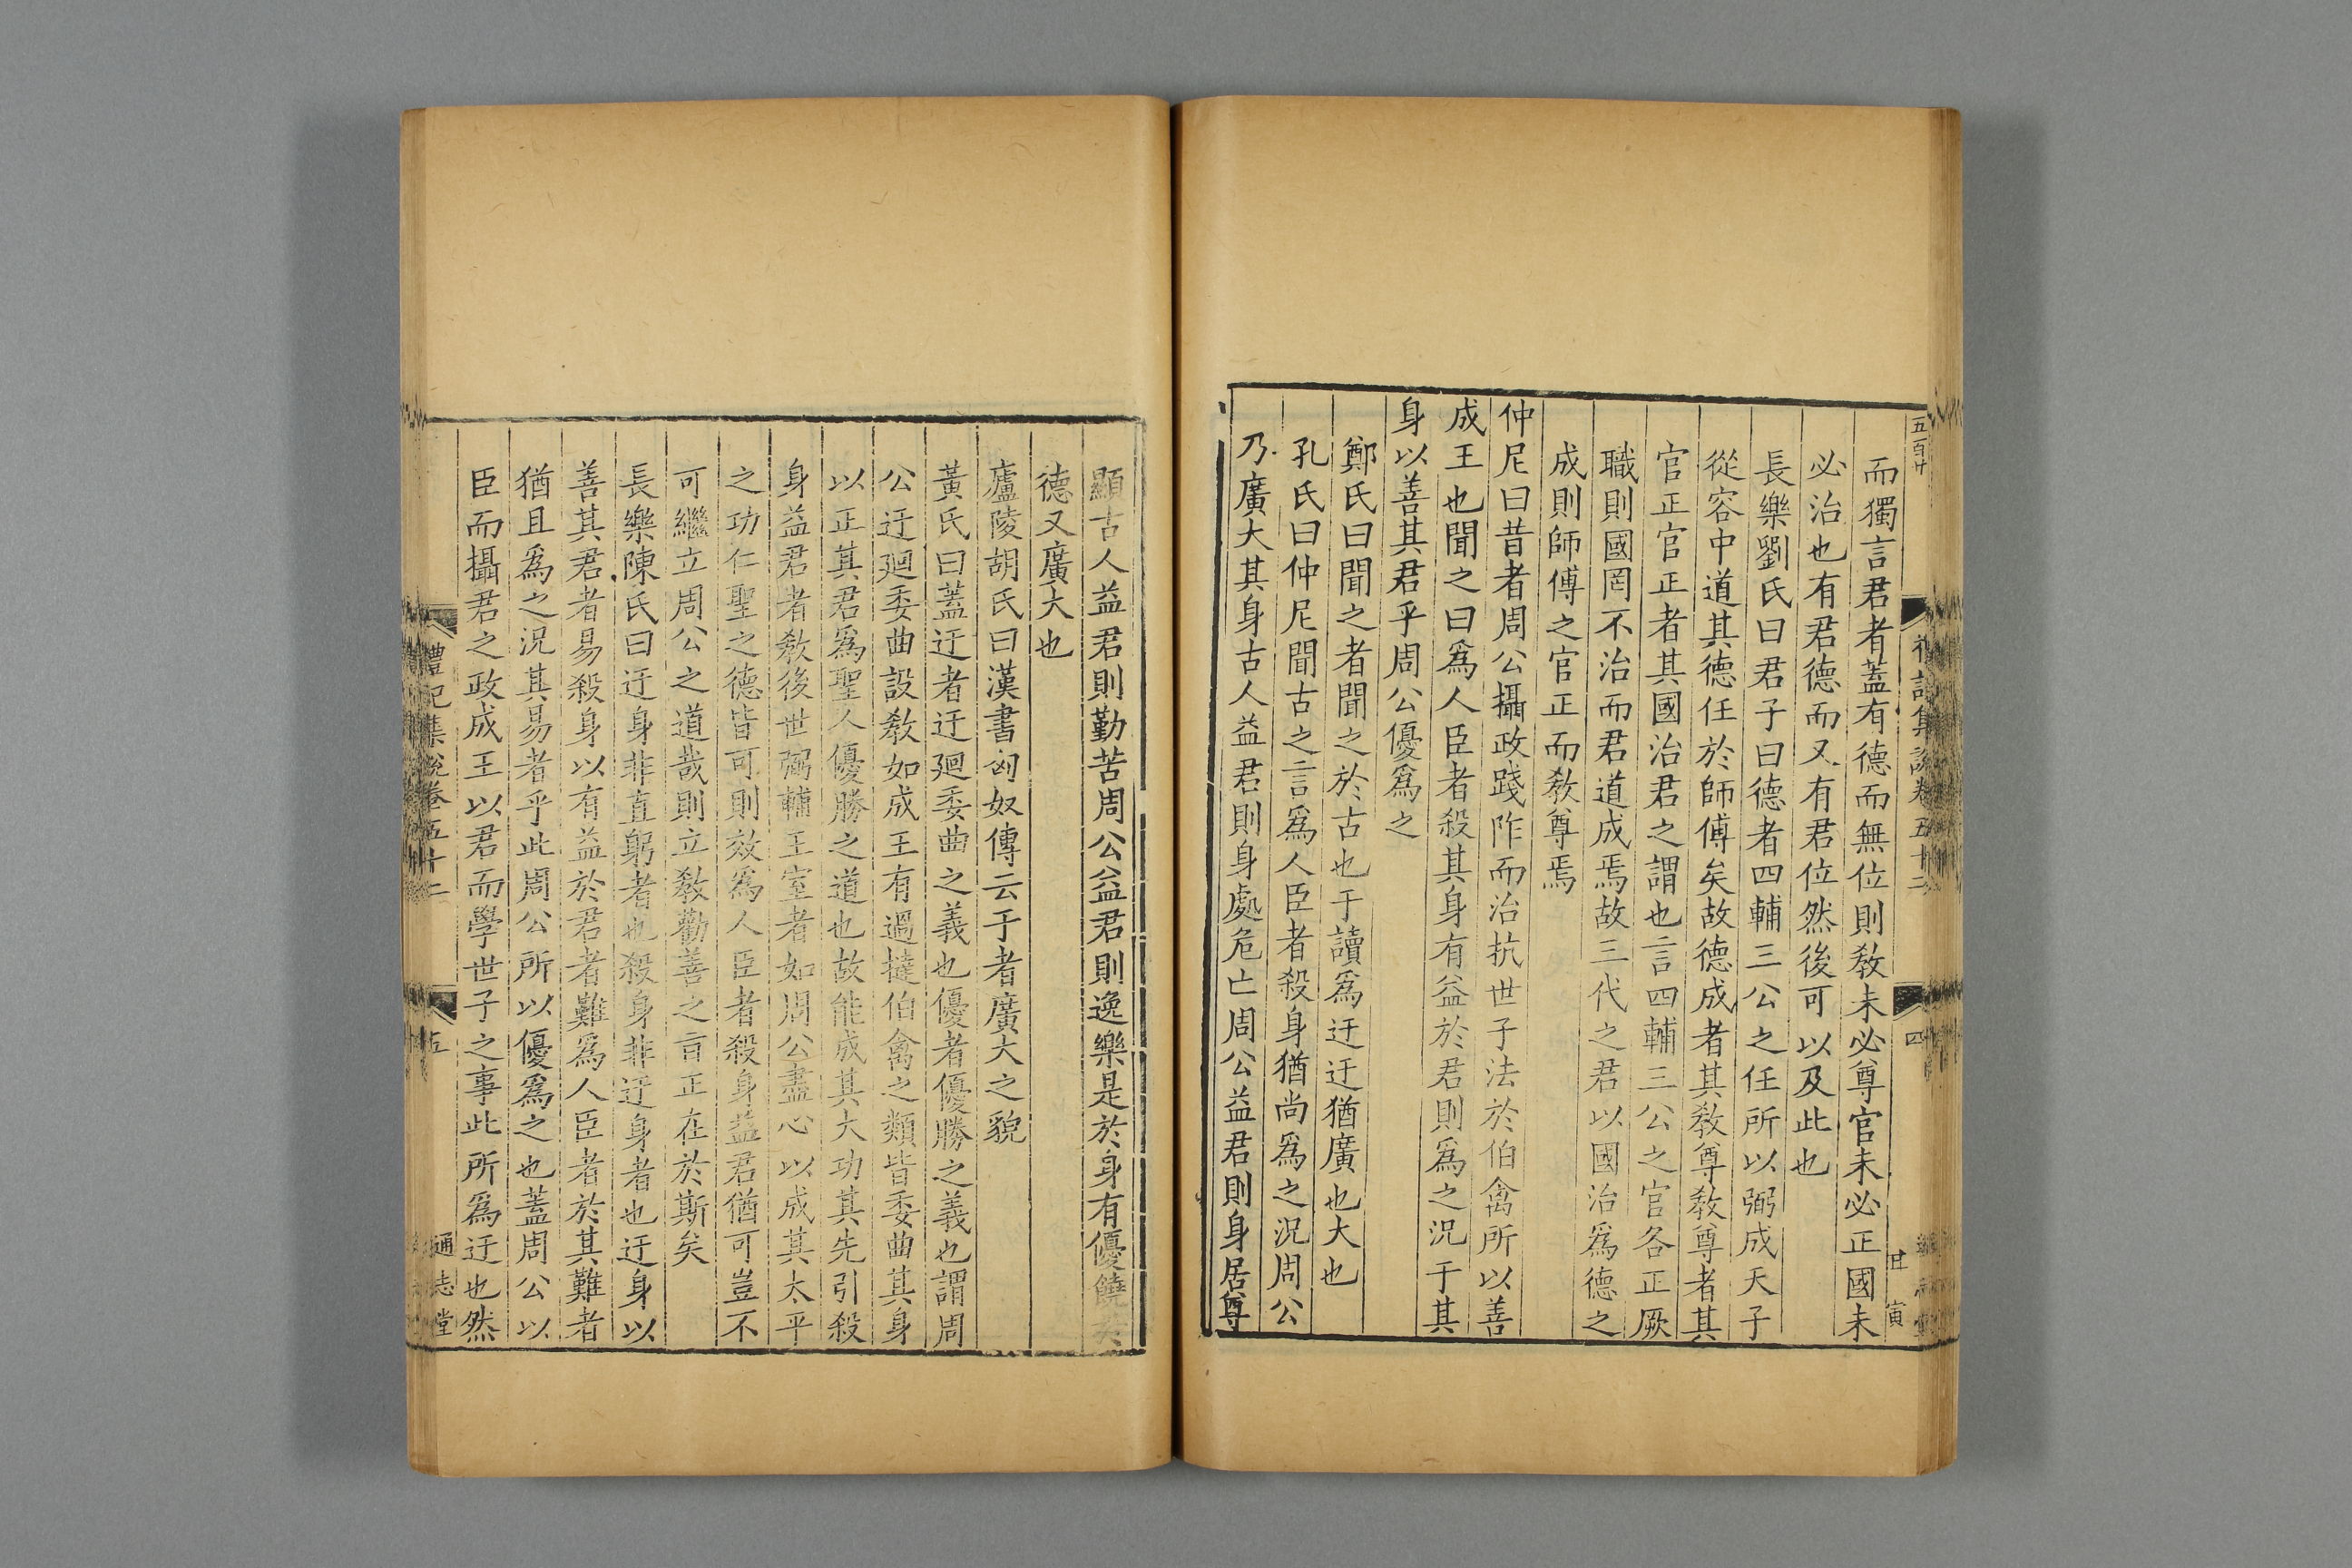 五百廿
禮記集說卷五十二
四
甘寅
而獨言君者蓋有德而無位則敎未必尊官未必正國未
必治也有君德而又有君位然後可以及此也
長樂劉氏曰君子曰德者四輔三公之任所以弼成天子
從容中道其德任於師傅矣故德成者其敎尊敎尊者其
官正官正者其國治君之謂也言四輔三公之官各正厥
職則國罔不治而君道成焉故三代之君以國治爲德之
成則師傅之官正而敎尊焉
仲尼曰昔者周公攝政踐阼而治抗世子法於伯禽所以善
成王也聞之曰爲人臣者殺其身有益於君則爲之況于其
身以善其君乎周公優爲之
鄭氏曰聞之者聞之於古也于讀爲迂迂猶廣也大也
孔氏曰仲尼聞古之言爲人臣者殺身猶尚爲之況周公
乃廣大其身古人益君則身處危亡周公益君則身居尊
顯古人益君則勤苦周公益君則逸樂是於身有優饒於
德又廣大也
廬陵胡氏曰漢書匈奴傳云于者廣大之貌
黃氏曰蓋迂者迂廻委曲之義也優者優勝之義也謂周
公迂廻委曲設敎如成王有過撻伯禽之類皆委曲其身
以正其君爲聖人優勝之道也故能成其大功其先引殺
身益君者敎後世弼輔王室者如周公盡心以成其太平
之功仁聖之德皆可則效爲人臣者殺身益君猶可豈不
可繼立周公之道哉則立敎勸善之言正在於斯矣
長樂陳氏曰迂身非直躬者也殺身非迂身者也迂身以
善其君者易殺身以有益於君者難爲人臣者於其難者
猶且爲之況其易者乎此周公所以優爲之也蓋周公以
臣而攝君之政成王以君而學世子之事此所爲迂也然
禮記集說卷五十二
五
通志堂